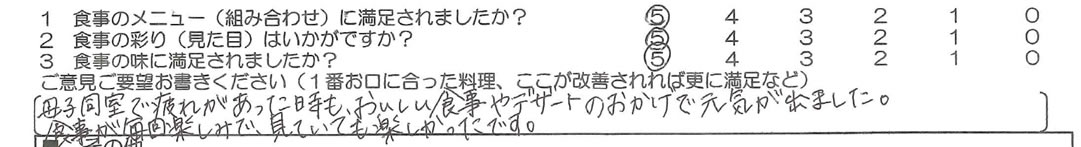 1 食事のメニュー（組み合わせ）に満足されましたか？ 5 4 3 2 1 0
2 食事の彩り（見た目）はいかがですか？ 5 4 3 2 1 0
3 食事の味に満足されましたか？ 5 4 3 2 1 0
ご意見ご要望お書きください（１番お口に合った料理、ここが改善されれば更に満足など）
母子同室で疲れがあった日時も、おいしい食事やデザートのおかげで元気が出ました。
食事が毎回楽しみで、見ていても楽しかったです。